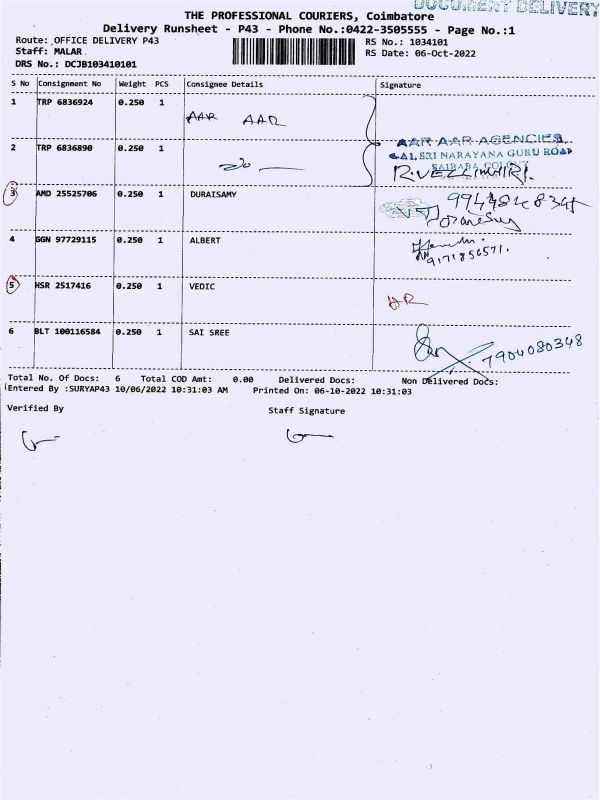 DOCUMENT DELIVERY
THE PROFESSIONAL COURIERS, Coimbatore
Delivery Runsheet - P43 - Phone No.:0422-3505555 - Page No.:1
Route: OFFICE DELIVERY P43 RS No.: 1034101
Staff: MALAR RS Date: 06-Oct-2022
DRS No.: DCJB103410101
S No Consignment No Weight PCS Consignee Details Signature
1 TRP 6836924 0.250 1 AAR AAR
2 TRP 6836890 0.250 1
AAR AAR AGENCIES
SRI NARAYANA GURU ROAD
SAIBABA COLONY
R.VELLINGIRI.
3 AMD 25525706 0.250 1 DURAISAMY
4 GGN 97729115 0.250 1 ALBERT
9171856571.
5 HSR 2517416 0.250 1 VEDIC
6 BLT 100116584 0.250 1 SAI SREE 7904080348
Total No. Of Docs: 6 Total COD Amt: 0.00 Delivered Docs: Non Delivered Docs:
(Entered By :SURYAP43 10/06/2022 10:31:03 AM Printed On: 06-10-2022 10:31:03
Verified By Staff Signature